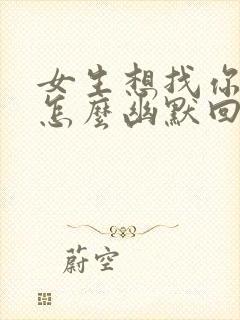 女生想找你
怎麼幽默回
蔚空